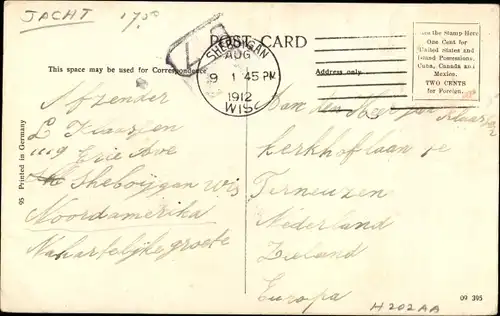 JACHT 17⁵⁰
POST CARD
This space may be used for Correspondence
Address only
the Stamp Here
One Cent for
United States and
Island Possessions,
Cuba, Canada and
Mexico.
TWO CENTS
for Foreign.
SHEBOYGAN
AUG
9
1 45 PM
1912
WIS.
Afzender
L Klaassen
1119 Erie Ave
Sheboijgan Wis
Noordamerika
Nahartelijke groete
Aan den Heer
Kerkhoflaan te
Terneuzen
Nederland
Zieland
Europa
95 Printed in Germany
09 395
H202AA